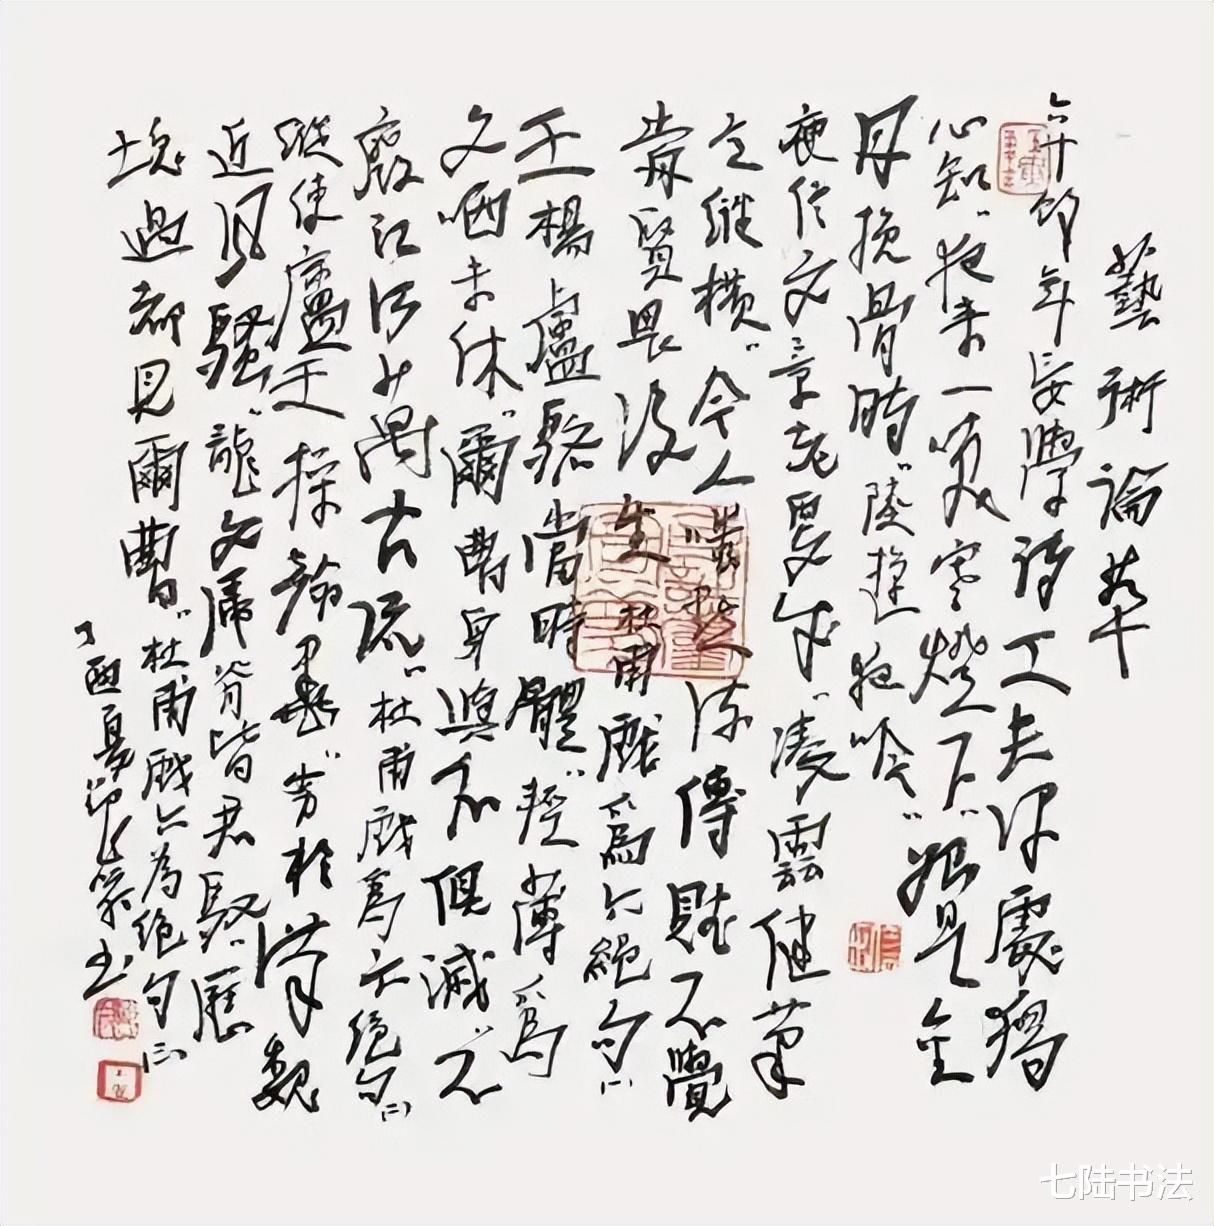 藝術論若干
六十邻年妄學詩工夫深處獨
心知夜来一笑寒燈下始是金
丹換骨時陸游夜吟
庾信文章老更成凌雲健筆
意縱横今人嗤點流傳賦不覺
前賢畏後生杜甫戲爲六絕句(一)
王楊盧駱當時體輕薄爲
文哂未休爾曹身與名俱滅不
廢江河萬古流杜甫戲爲六絕句(二)
縱使盧王操翰墨劣於漢魏
近風騷龍文虎脊皆君馭歷
塊過都見爾曹杜甫戲六為绝句(三)
丁酉夏
七陆书法